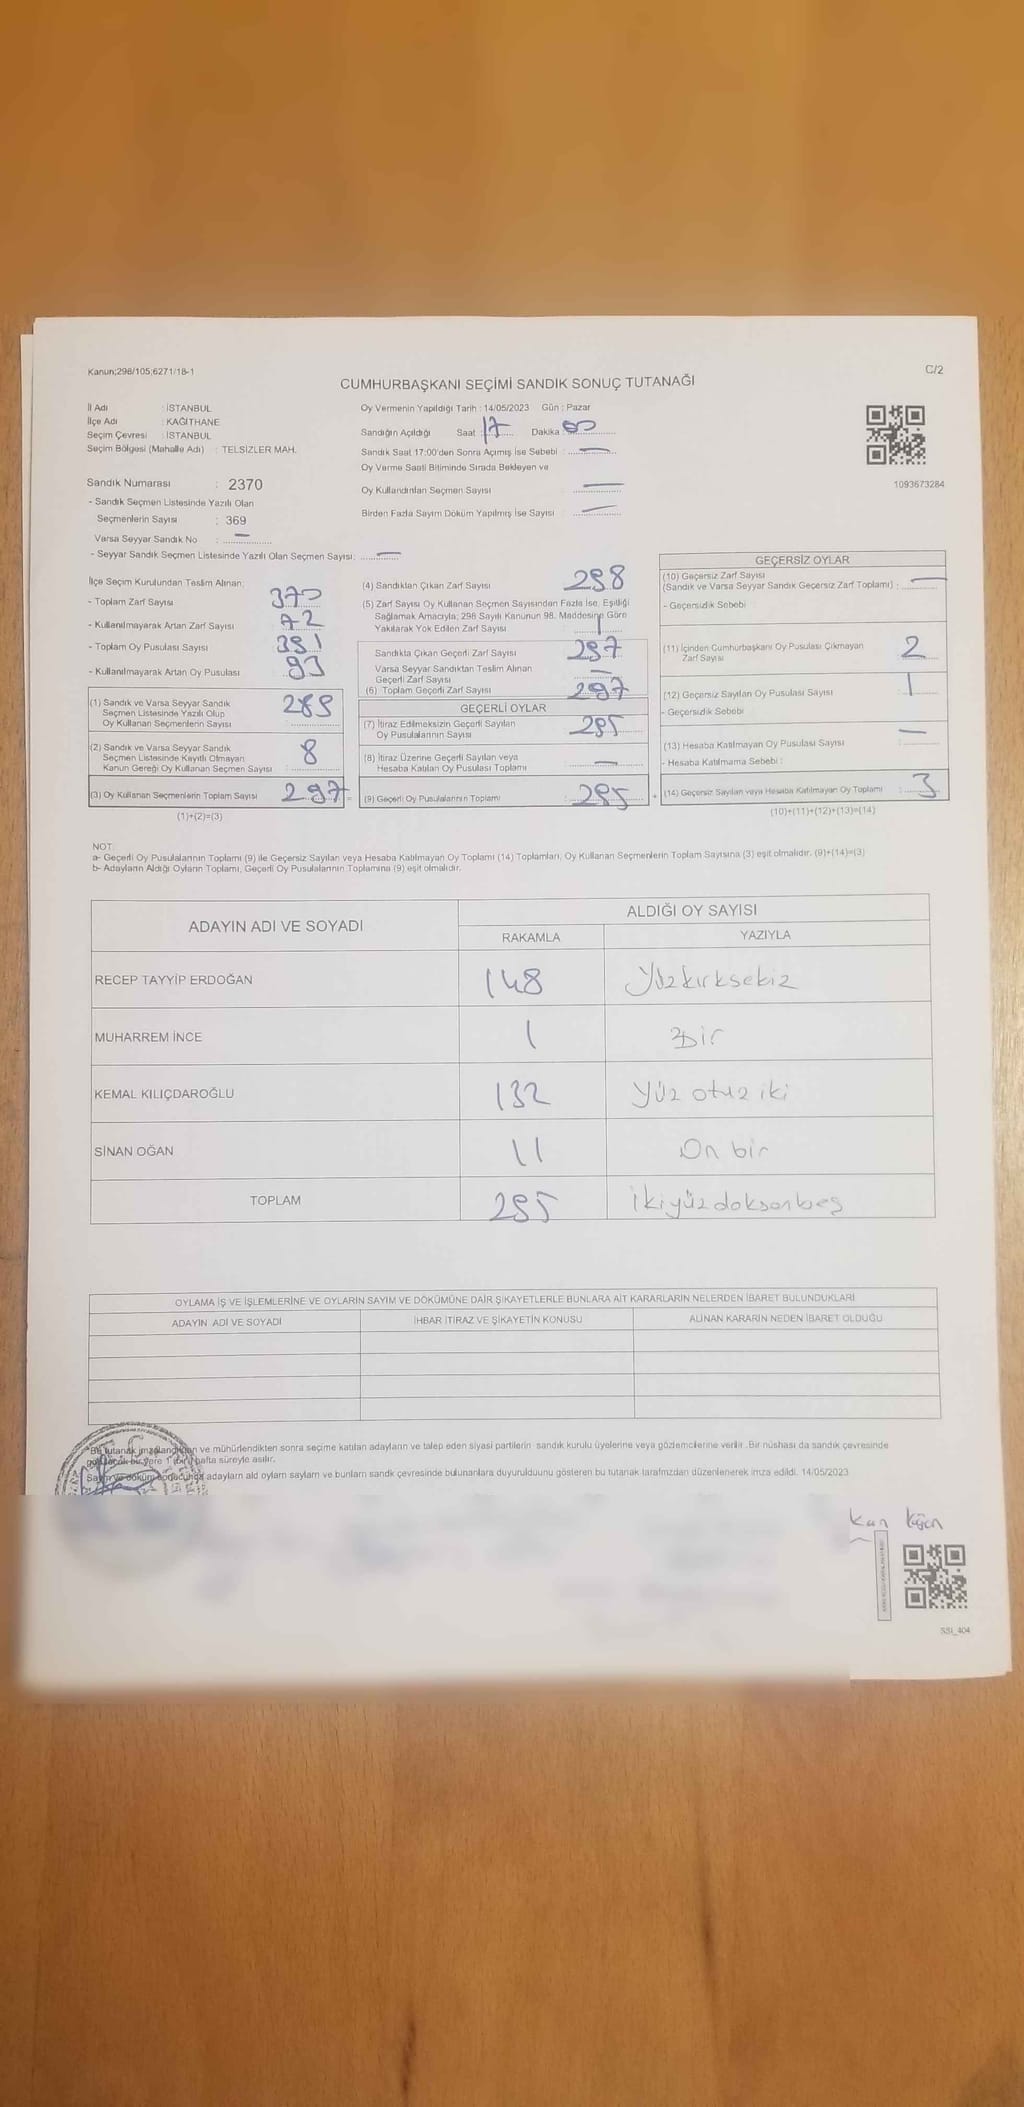 Kanun;298/105;6271/18-1
C/2
CUMHURBAŞKANI SEÇİMİ SANDIK SONUÇ TUTANAĞI
İl Adı : İSTANBUL
İlçe Adı : KAĞITHANE
Seçim Çevresi : İSTANBUL
Seçim Bölgesi (Mahalle Adı) : TELSİZLER MAH.
Sandık Numarası : 2370
- Sandık Seçmen Listesinde Yazılı Olan
Seçmenlerin Sayısı : 369
Varsa Seyyar Sandık No : —
- Seyyar Sandık Seçmen Listesinde Yazılı Olan Seçmen Sayısı: —
Oy Vermenin Yapıldığı Tarih : 14/05/2023 Gün : Pazar
Sandığın Açıldığı Saat : 17 Dakika : 00
Sandık Saat 17:00'den Sonra Açımış İse Sebebi : —
Oy Verme Saati Bitiminde Sırada Bekleyen ve
Oy Kullandırılan Seçmen Sayısı : —
Birden Fazla Sayım Döküm Yapılmış İse Sayısı : —
1093673284
İlçe Seçim Kurulundan Teslim Alınan;
- Toplam Zarf Sayısı 370
- Kullanılmayarak Artan Zarf Sayısı 72
- Toplam Oy Pusulası Sayısı 391
- Kullanılmayarak Artan Oy Pusulası 93
(1) Sandık ve Varsa Seyyar Sandık
Seçmen Listesinde Yazılı Olup
Oy Kullanan Seçmenlerin Sayısı : 289
(2) Sandık ve Varsa Seyyar Sandık
Seçmen Listesinde Kayıtlı Olmayan
Kanun Gereği Oy Kullanan Seçmen Sayısı : 8
(3) Oy Kullanan Seçmenlerin Toplam Sayısı : 297
(1)+(2)=(3)
(4) Sandıktan Çıkan Zarf Sayısı 298
(5) Zarf Sayısı Oy Kullanan Seçmen Sayısından Fazla İse, Eşitliği
Sağlamak Amacıyla; 298 Sayılı Kanunun 98. Maddesine Göre
Yakılarak Yok Edilen Zarf Sayısı 1
Sandıkta Çıkan Geçerli Zarf Sayısı 297
Varsa Seyyar Sandıktan Teslim Alınan
Geçerli Zarf Sayısı —
(6) Toplam Geçerli Zarf Sayısı 297
GEÇERLİ OYLAR
(7) İtiraz Edilmeksizin Geçerli Sayılan
Oy Pusulalarının Sayısı : 295
(8) İtiraz Üzerine Geçerli Sayılan veya
Hesaba Katılan Oy Pusulası Toplamı : —
(9) Geçerli Oy Pusulalarının Toplamı : 295
GEÇERSİZ OYLAR
(10) Geçersiz Zarf Sayısı
(Sandık ve Varsa Seyyar Sandık Geçersiz Zarf Toplamı) : —
- Geçersizlik Sebebi
(11) İçinden Cumhurbaşkanı Oy Pusulası Çıkmayan
Zarf Sayısı 2
(12) Geçersiz Sayılan Oy Pusulası Sayısı : 1
- Geçersizlik Sebebi
(13) Hesaba Katılmayan Oy Pusulası Sayısı : —
- Hesaba Katılmama Sebebi :
(14) Geçersiz Sayılan veya Hesaba Katılmayan Oy Toplamı : 3
(10)+(11)+(12)+(13)=(14)
NOT:
a- Geçerli Oy Pusulalarının Toplamı (9) ile Geçersiz Sayılan veya Hesaba Katılmayan Oy Toplamı (14) Toplamları, Oy Kullanan Seçmenlerin Toplam Sayısına (3) eşit olmalıdır. (9)+(14)=(3)
b- Adayların Aldığı Oyların Toplamı, Geçerli Oy Pusulalarının Toplamına (9) eşit olmalıdır.
ADAYIN ADI VE SOYADI
ALDIĞI OY SAYISI
RAKAMLA YAZIYLA
RECEP TAYYİP ERDOĞAN 148 Yüzkırksekiz
MUHARREM İNCE 1 Bir
KEMAL KILIÇDAROĞLU 132 Yüz otuz iki
SİNAN OĞAN 11 On bir
TOPLAM 295 İkiyüzdoksanbeş
OYLAMA İŞ VE İŞLEMLERİNE VE OYLARIN SAYIM VE DÖKÜMÜNE DAİR ŞİKAYETLERLE BUNLARA AİT KARARLARIN NELERDEN İBARET BULUNDUKLARI
ADAYIN ADI VE SOYADI İHBAR İTİRAZ VE ŞİKAYETİN KONUSU ALINAN KARARIN NEDEN İBARET OLDUĞU
Bu tutanak imzalandıktan ve mühürlendikten sonra seçime katılan adayların ve talep eden siyasi partilerin sandık kurulu üyelerine veya gözlemcilerine verilir. Bir nüshası da sandık çevresinde
görülecek bir yere 1 (bir) hafta süreyle asılır.
Sayım ve döküm sonucunda adayların ald oyların saylam ve bunların sandık çevresinde bulunanlara duyurulduunu gösteren bu tutanak tarafmzdan düzenlenerek imza edildi. 14/05/2023
SSI_404